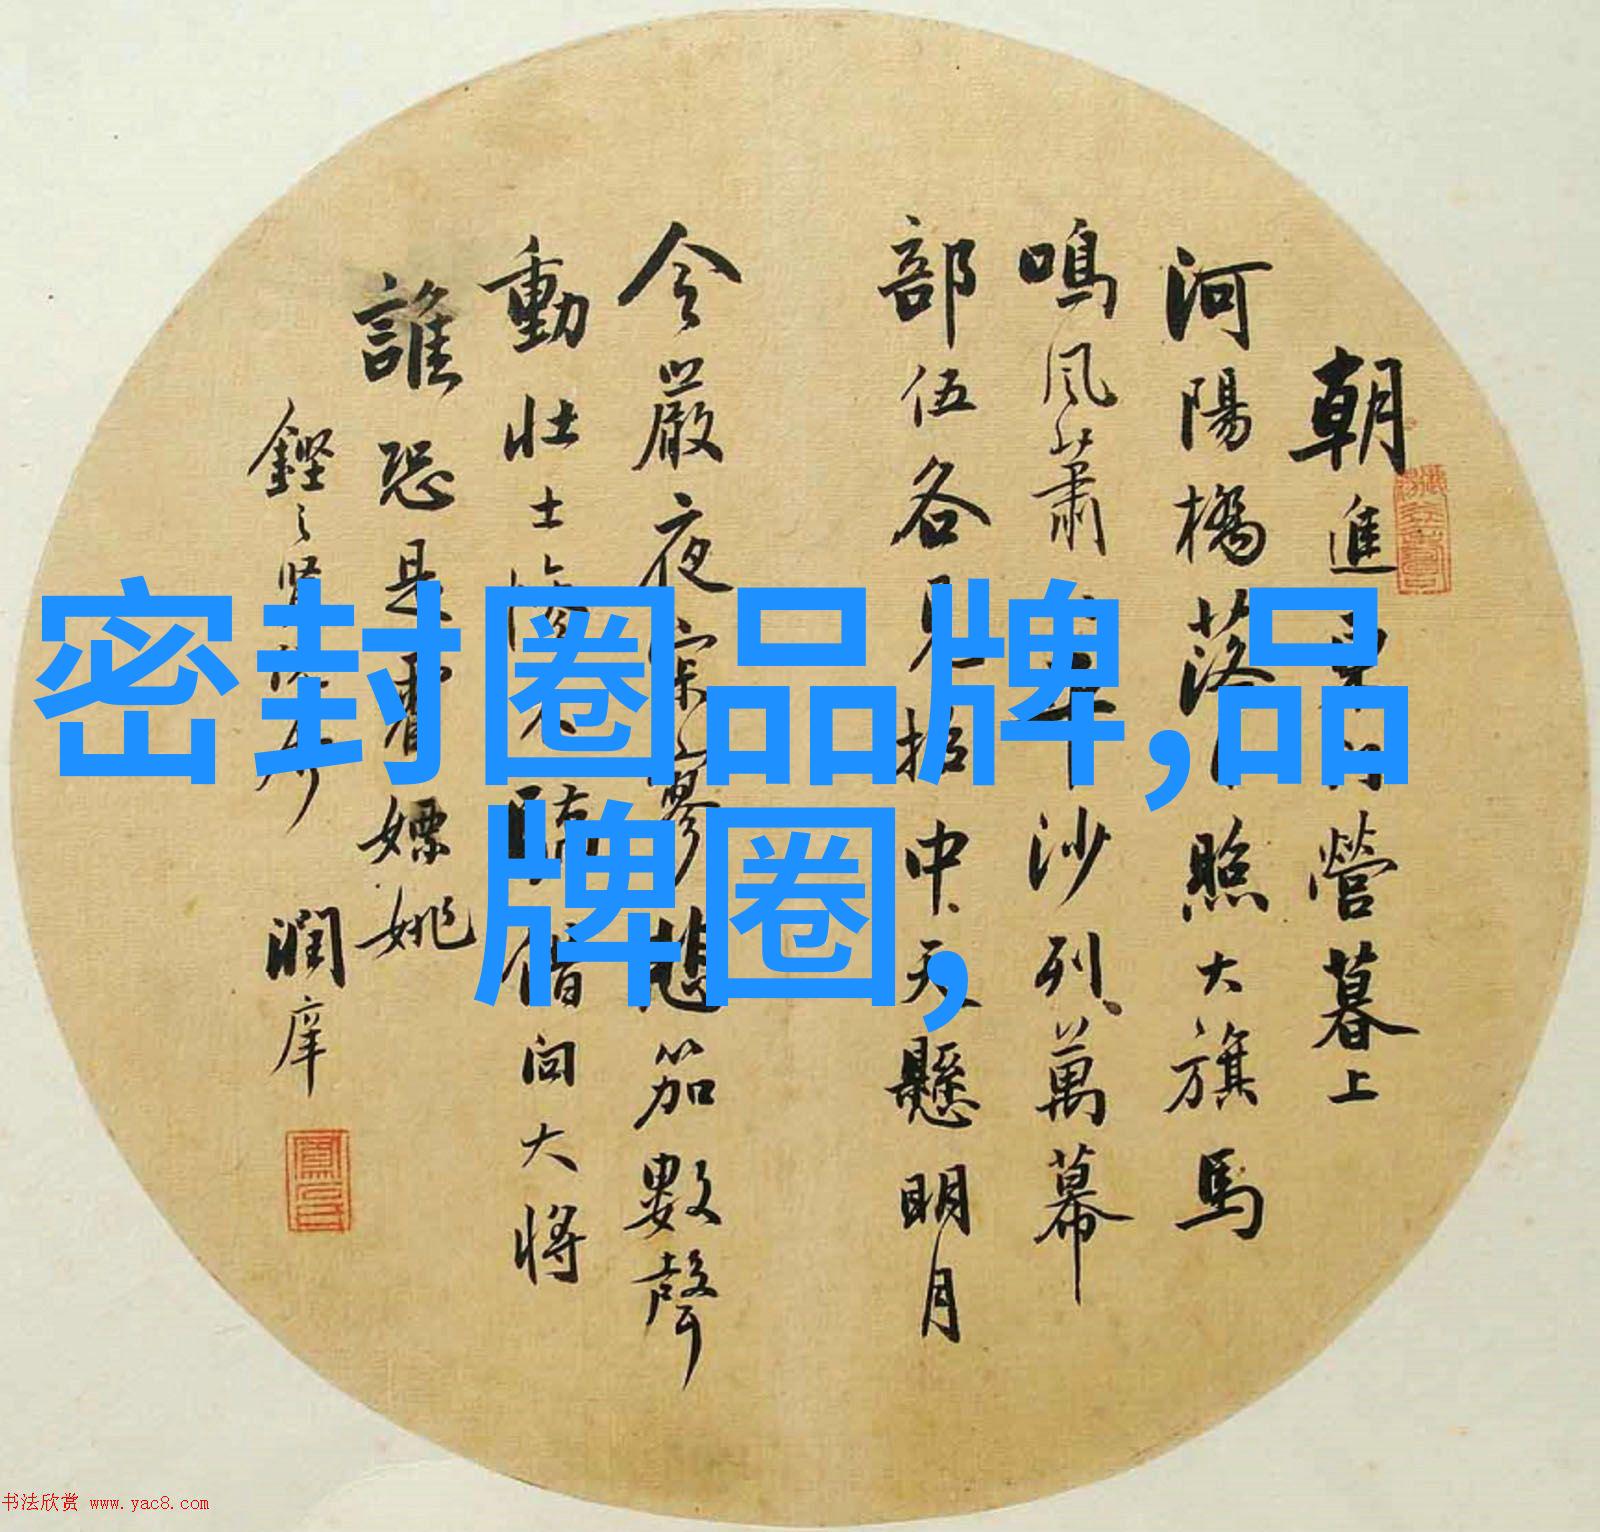 朝進東門營暮上
河陽橋落日照大旗馬
鳴風蕭平沙列萬幕
部伍各見招中天懸明月
令嚴夜寂寥悲笳數聲
動壯士慘不驕借問大將
誰恐是霍嫖姚
潤庠
密封圈品牌,品
牌圈,
书法欣赏 www.yac8.com